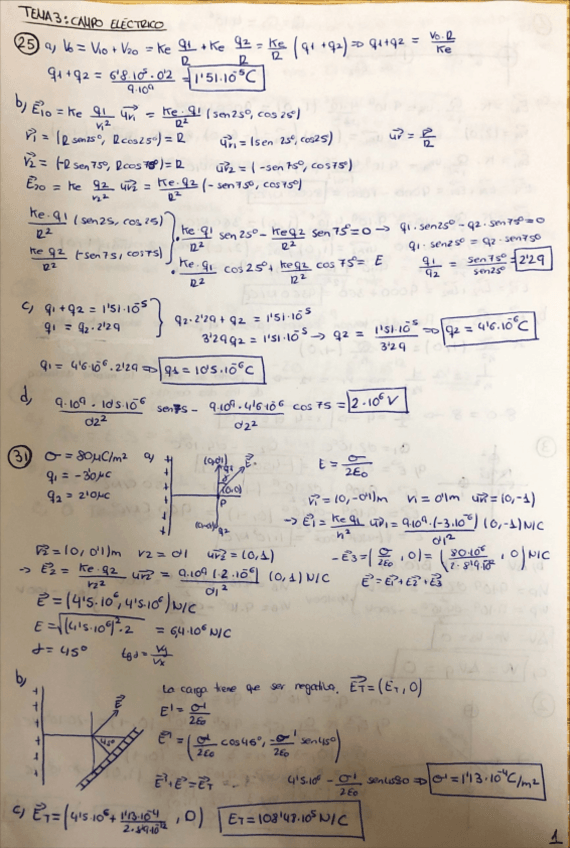 TEMA 3: CAMPO ELÉCTRICO
25 a) V₀ = V₁₀ + V₂₀ = Ke q₁/R + Ke q₂/R = Ke/R (q₁+q₂) ⇒ q₁+q₂ = V₀·R/Ke
q₁+q₂ = 6'8·10⁵·0'2/9·10⁹ = 1'51·10⁻⁵C
b) E⃗₁₀ = Ke q₁/r₁² u⃗r₁ = Ke·q₁/R² (sen25º, cos25º)
r⃗₁ = (R sen25º, R cos25º) = R u⃗r₁ = (sen 25º, cos25) u⃗r = r⃗/R
r⃗₂ = (-R sen75º, R cos75º) = R u⃗r₂ = (-sen75º, cos75º)
E⃗₂₀ = Ke q₂/r₂² u⃗r₂ = Ke·q₂/R² (-sen75º, cos75º)
Ke·q₁/R² (sen25, cos25)
Ke q₂/R² (-sen75, cos75)
· Ke·q₁/R² sen25º - Ke q₂/R² sen75º = 0 → q₁·sen25º - q₂·sen75º = 0
q₁·sen25º = q₂·sen75º
· Ke·q₁/R² cos25º + Ke q₂/R² cos75º = E q₁/q₂ = sen75º/sen25º = 2'29
c) q₁+q₂ = 1'51·10⁻⁵
q₁ = q₂·2'29
q₂·2'29 + q₂ = 1'51·10⁻⁵
3'29q₂ = 1'51·10⁻⁵ → q₂ = 1'51·10⁻⁵/3'29 ⇒ q₂ = 4'6·10⁻⁶C
q₁ = 4'6·10⁻⁶·2'29 ⇒ q₁ = 10'5·10⁻⁶C
d) 9·10⁹·10'5·10⁻⁶/0'2² sen75 - 9·10⁹·4'6·10⁻⁶/0'2² cos75 = 2·10⁶ V
31 σ = 80μC/m² a) E = σ/2ε₀
q₁ = -3'0μC
q₂ = 2'0μC
(0,0'1)
q₁ E⃗
(0,0)
P
q₂
r⃗₁ = (0,-0'1)m r₁ = 0'1m u⃗r₁ = (0,-1)
→ E⃗₁ = Ke q₁/r₁² u⃗r₁ = 9·10⁹·(-3·10⁻⁶)/0'1² (0,-1)N/C
r⃗₂ = (0, 0'1)m r₂ = 0'1 u⃗r₂ = (0,1) - E⃗₃ = (σ/2ε₀, 0) = (80·10⁻⁶/2·8'9·10⁻¹², 0) N/C
→ E⃗₂ = Ke·q₂/r₂² u⃗r₂ = 9·10⁹·(2·10⁻⁶)/0'1² (0,1)N/C E⃗ = E⃗₁+E⃗₂+E⃗₃
E⃗ = (4'5·10⁶, 4'5·10⁶)N/C
E = √(4'5·10⁶)²·2 = 6,4·10⁶ N/C
α = 45º tgα = Vy/Vx
b) La carga tiene que ser negativa. E⃗T = (ET, 0)
E' = σ'/2ε₀
E⃗
45º
E⃗' = (σ'/2ε₀ cos45º, -σ'/2ε₀ sen45º)
E⃗'+E⃗ = E⃗T 4'5·10⁶ - σ'/2ε₀ sen45=0 ⇒ σ = 1'13·10⁻⁴C/m²
c) E⃗T = (4'5·10⁶ + 1'13·10⁻⁴/2·8'9·10⁻¹², 0) ET = 108'48·10⁵N/C
1